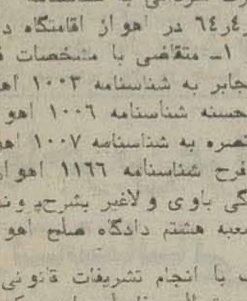 ر۴ر۶۴ در اهواز اقامتگاه د
۱ـ متقاضی با مشخصات ف
جابر به شناسنامه ۱۰۰۳ اهو
حسنه شناسنامه ۱۰۰۶ اهو
نصره به شناسنامه ۱۰۰۷ اهو
فرح شناسنامه ۱۱۶۶ اهواز
گی باوی ولاغیر بشرح
شعبه هشتم دادگاه صلح اهو
ب با انجام تشریفات قانونی